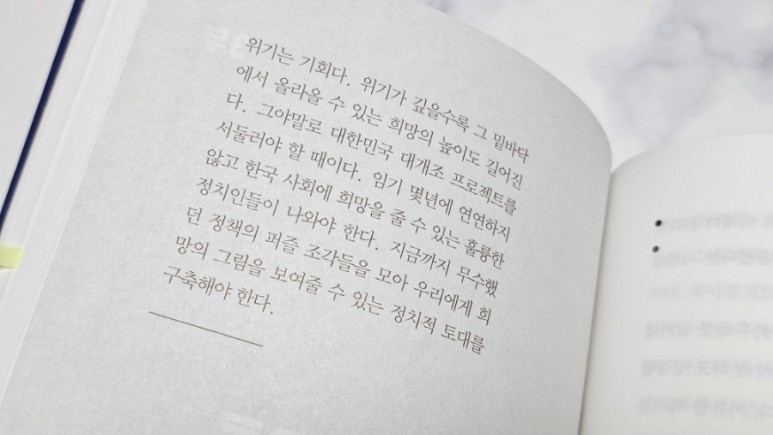 위기는 기회다. 위기가 깊을수록 그 밑바닥
에서 올라올 수 있는 희망의 높이도 길어진
다. 그야말로 대한민국 대개조 프로젝트를
서둘러야 할 때이다. 임기 몇년에 연연하지
않고 한국 사회에 희망을 줄 수 있는 훌륭한
정치인들이 나와야 한다. 지금까지 무수했
던 정책의 퍼즐 조각들을 모아 우리에게 희
망의 그림을 보여줄 수 있는 정치적 토대를
구축해야 한다.